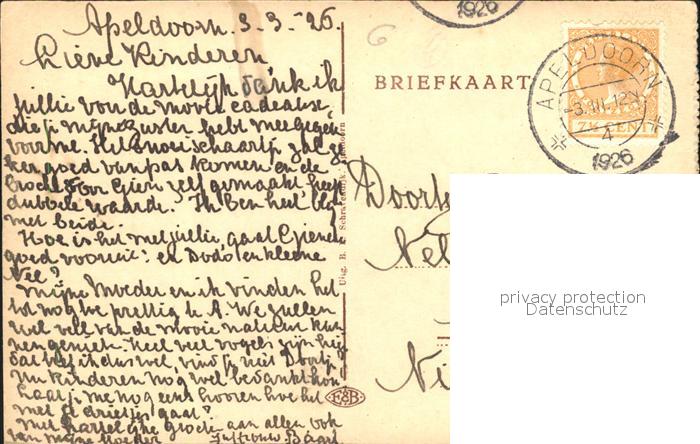 Apeldoorn 3.3-'26
Lieve Kinderen,
Hartelijk dank ik
jullie voor de mooie cadeautjes,
die je mijn zuster hebt meegegeven
voor me. Het mooi schaartje zal ge
goed van pas komen en de
broche door Gien zelf gemaakt, heeft
dubbele waarde. Ik ben heel blij
met beide.
Hoe is het met jullie, gaat Gienen
goed vooruit: en Dodo en kleine
Nel?
Mijne Moeder en ik vinden het
nog we prettig te A. We zullen
wel veel van de mooie natuur kun
nen genieten. Heel veel vogels zijn hier
dat tref ik dus wel, vind je niet Doortje?
Nu kinderen nog wel bedankt hoor
Laat je me nog eens hooren hoe het
met je drietjes gaat?
Met hartelijke groete aan allen ook
van mijne Moeder Juffrouw Baart
BRIEFKAART
APELDOORN
3.III.12V
4
1926
1926
7½ CENT
Uitg. B.
Doortje
Nel
Ni
F&B
privacy protection
Datenschutz